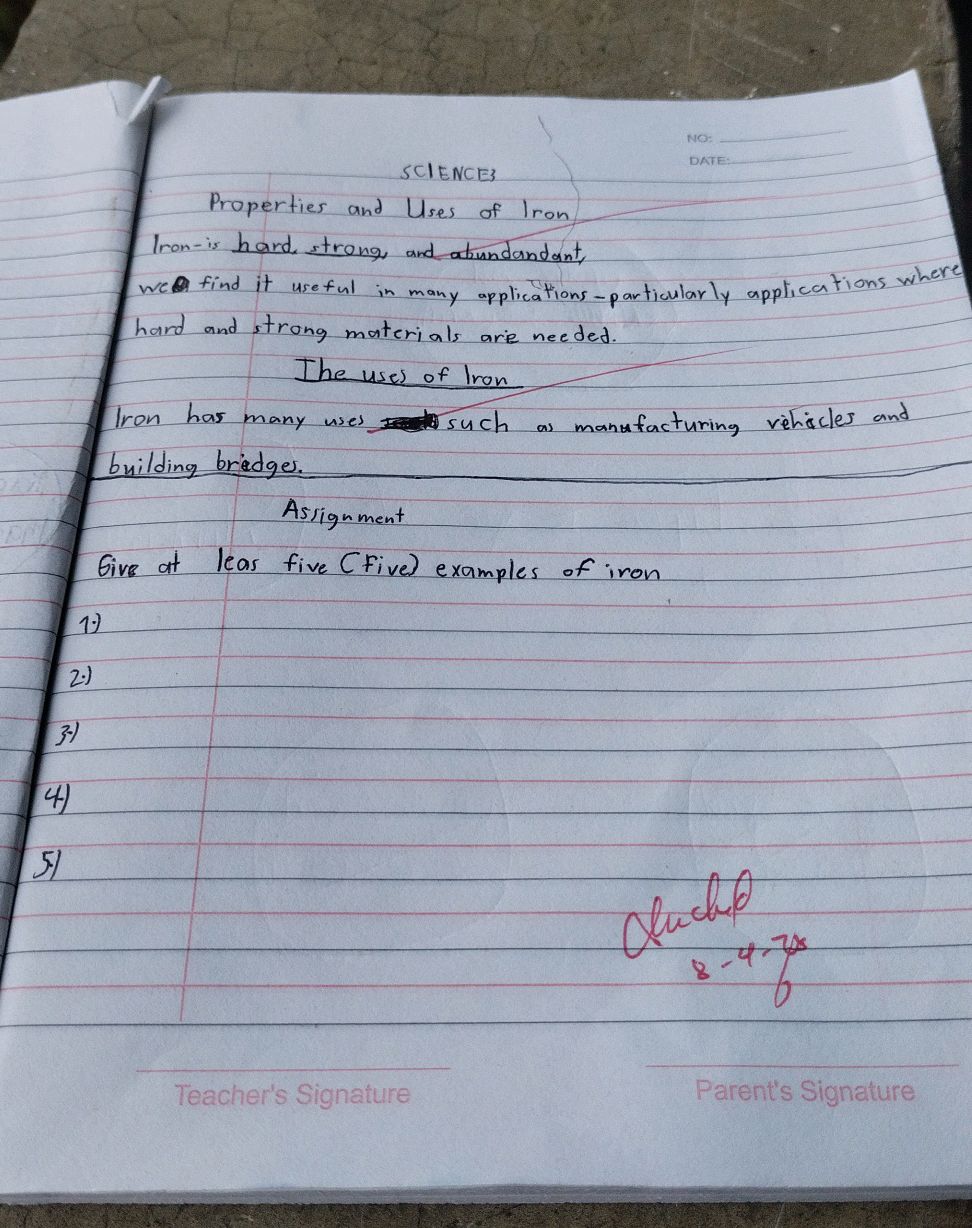 NO:
DATE:
SCIENCE3
Properties and Uses of Iron
Iron-is hard, strong, and abundandant,
we find it useful in many applications-particularly applications where
hard and strong materials are needed.
The uses of Iron
Iron has many uses such as manufacturing vehicles and
building bridges.
Assignment
Give at leas five (Five) examples of iron
1.)
2.)
3.)
4.)
5.)
8-4-
Teacher's Signature
Parent's Signature